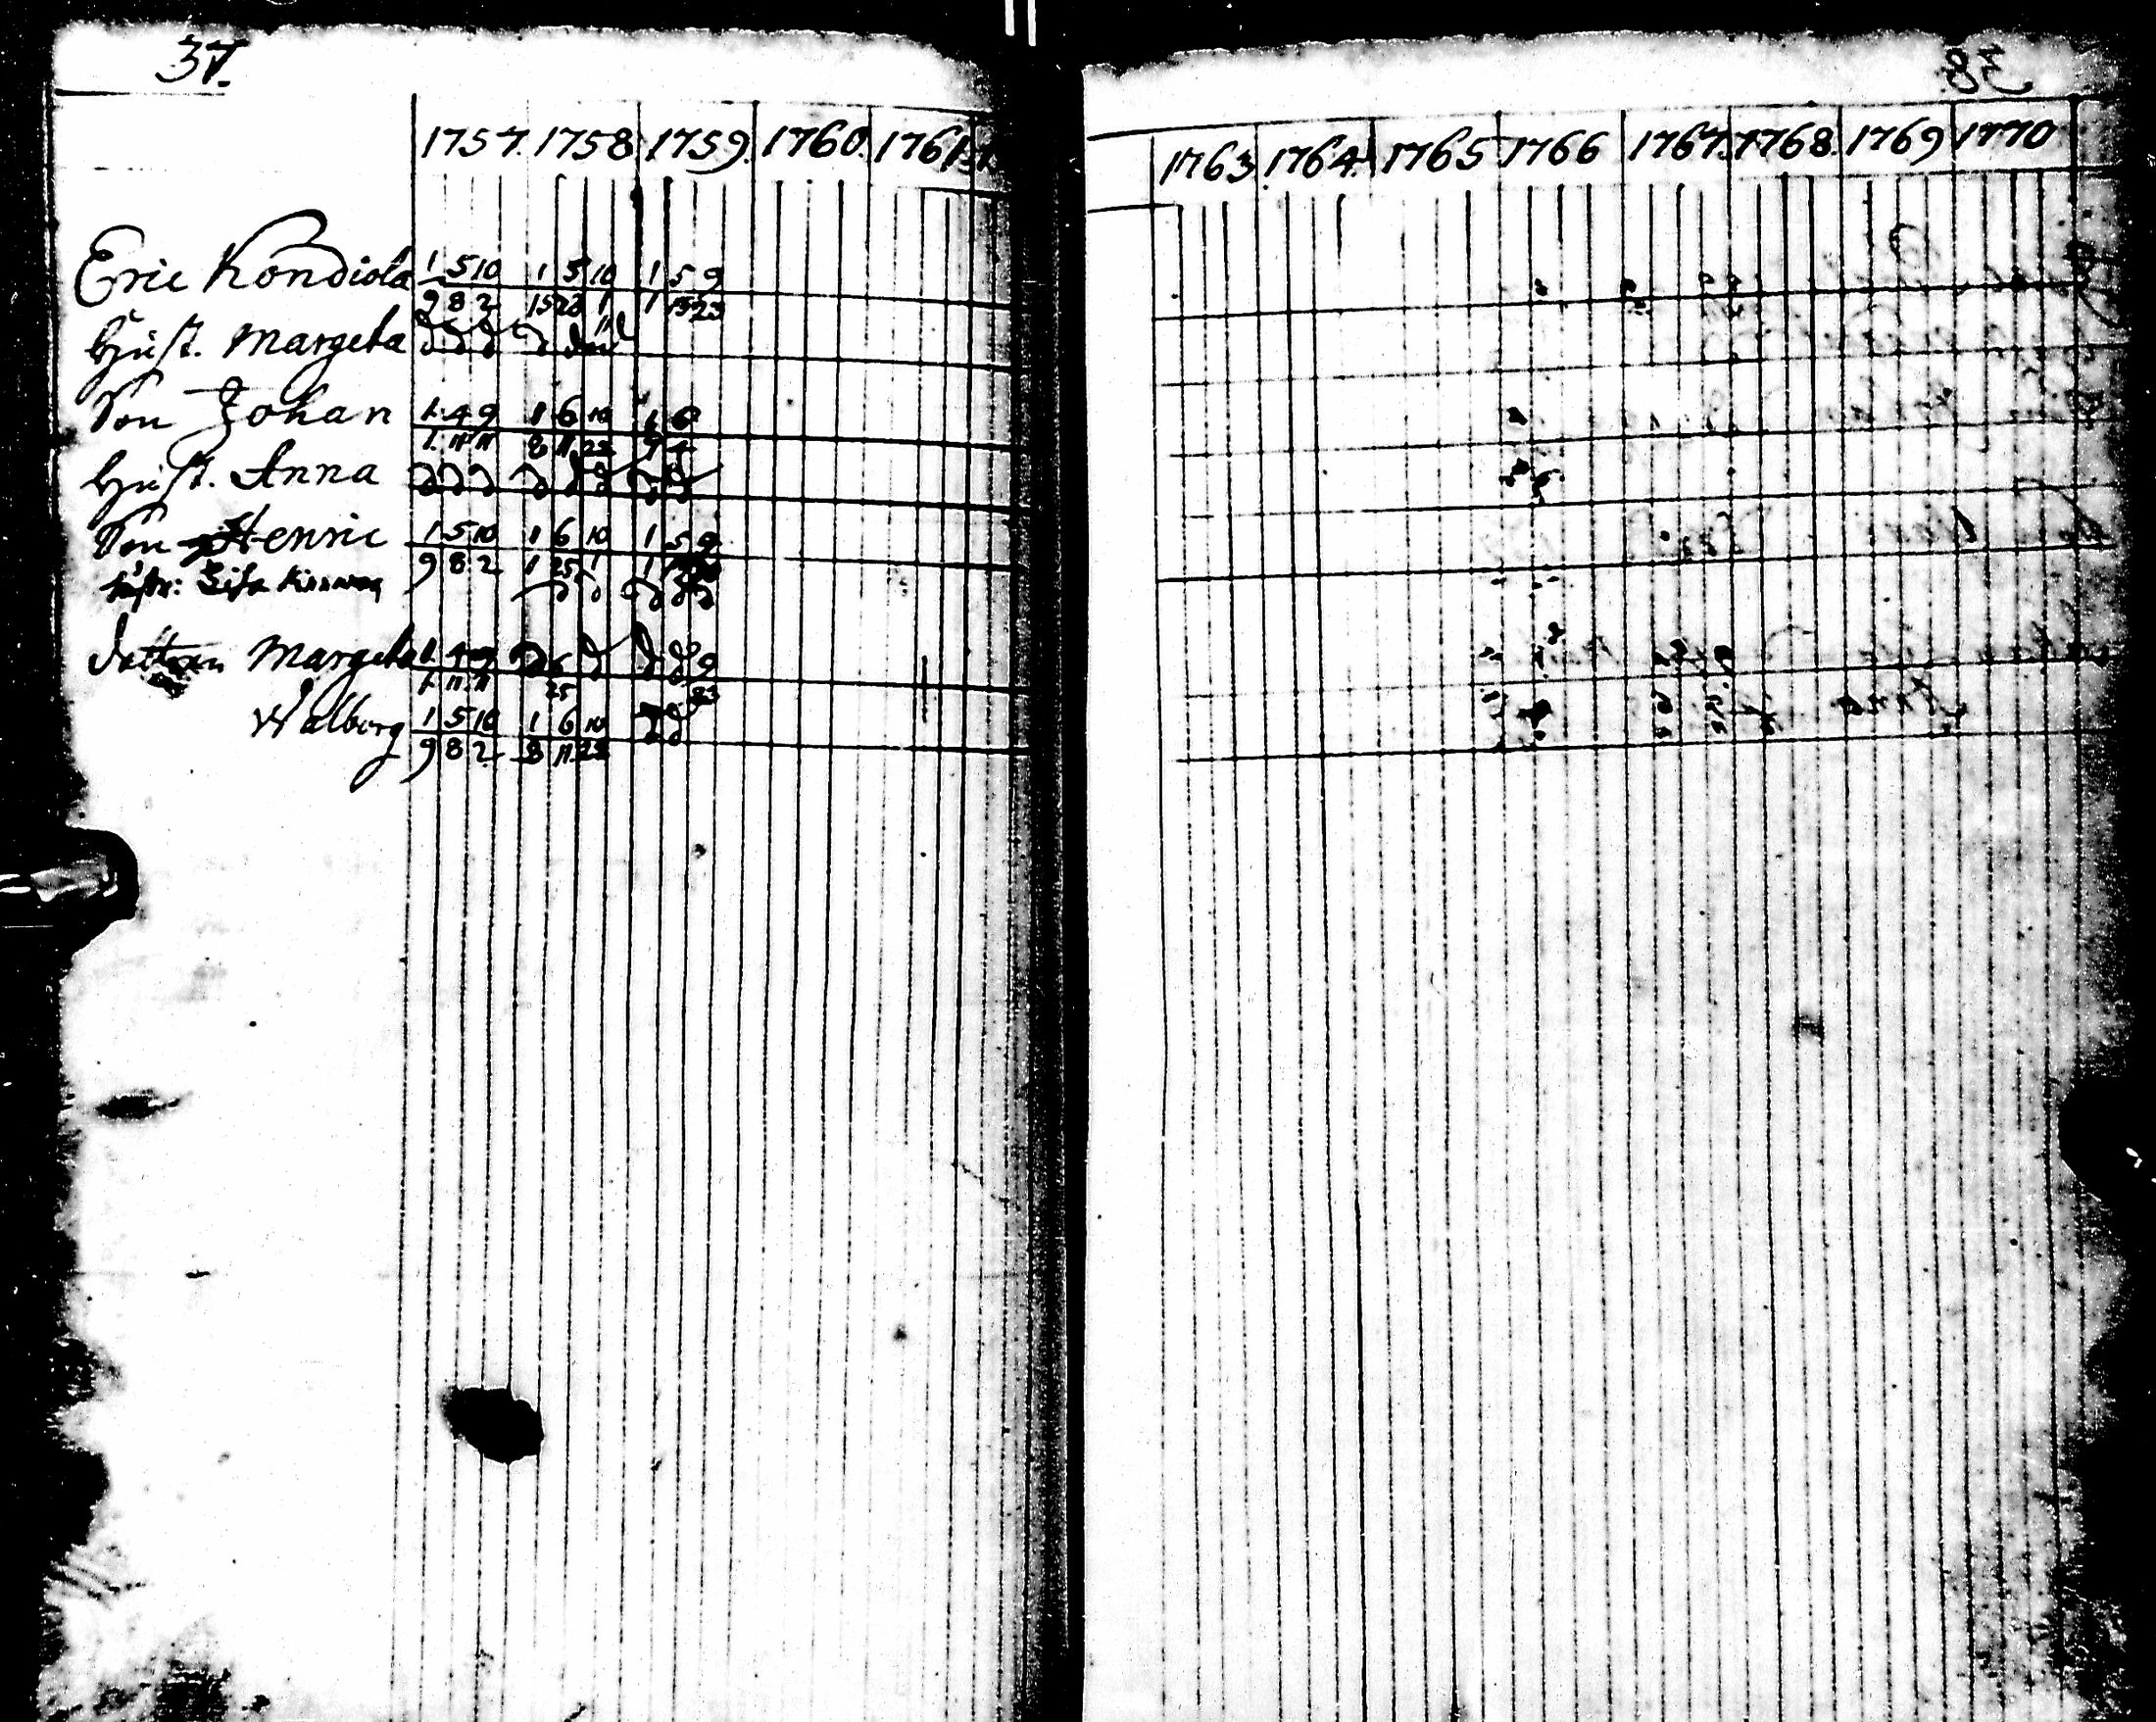 37.
1757. 1758 1759. 1760. 1761
Eric Kondiola 1 5 10 1 5 10 1 5 9
9 8 2 15 23 1 1 15 23
Hust. Margeta
Son Johan 1. 4 9 1 6 10 1 6
1. 11 11 8 11 23 9 4
Hust. Anna
Son Henric 1 5 10 1 6 10 1 5 9
9 8 2 1 25 1 1
hustr:
Margeta 1. 4 9 6 9
1. 11 11 25 23
Walborg 1 5 10 1 6 10
9 8 2 8 11 23
38
1763. 1764. 1765 1766 1767. 1768. 1769 1770